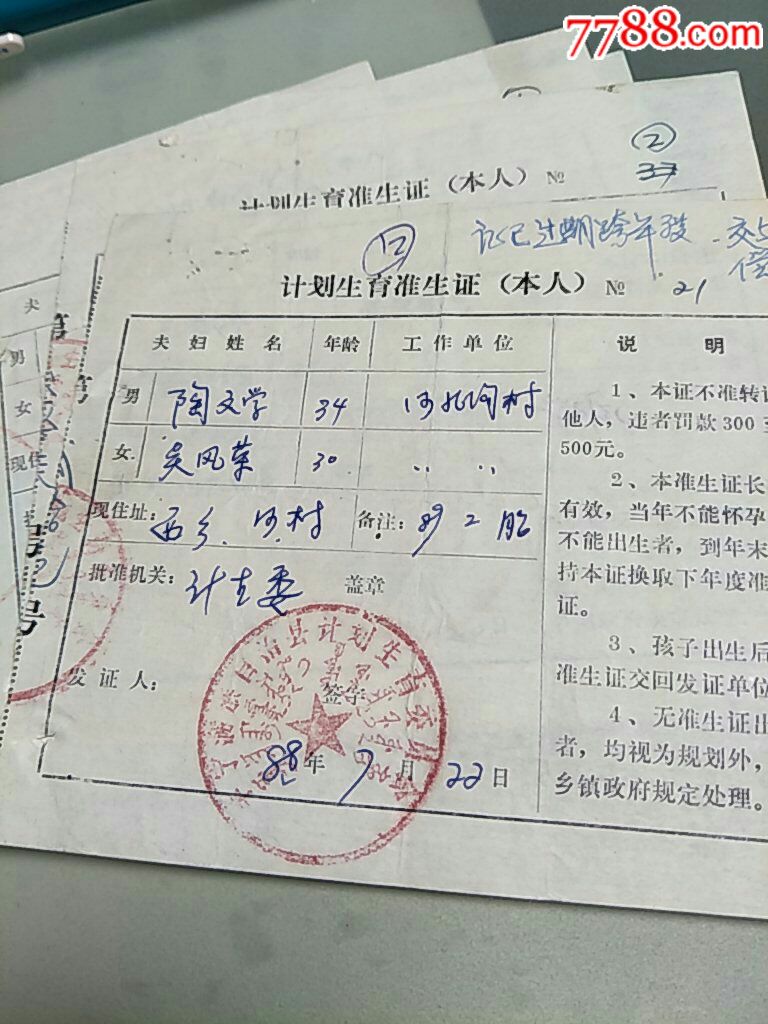 7788.com
②
37
计划生育准生证（本人）№
证已过期跨年段
⑫
计划生育准生证（本人）№ 21
夫妇姓名 年龄 工作单位 说明
男 陶文学 34 河北沟村
女 吴风荣 30 〃 〃
现住址： 西乡、河村 备注： 89 2 胎
批准机关： 计生委 盖章
发证人： 签字
88年7月22日
自治县计划生育委
1、本证不准转
他人，违者罚款300
500元。
2、本准生证长
有效，当年不能怀孕
不能出生者，到年末
持本证换取下年度准
证。
3、孩子出生后
准生证交回发证单位
4、无准生证出
者，均视为规划外，
乡镇政府规定处理。
夫
男
女
现住
号